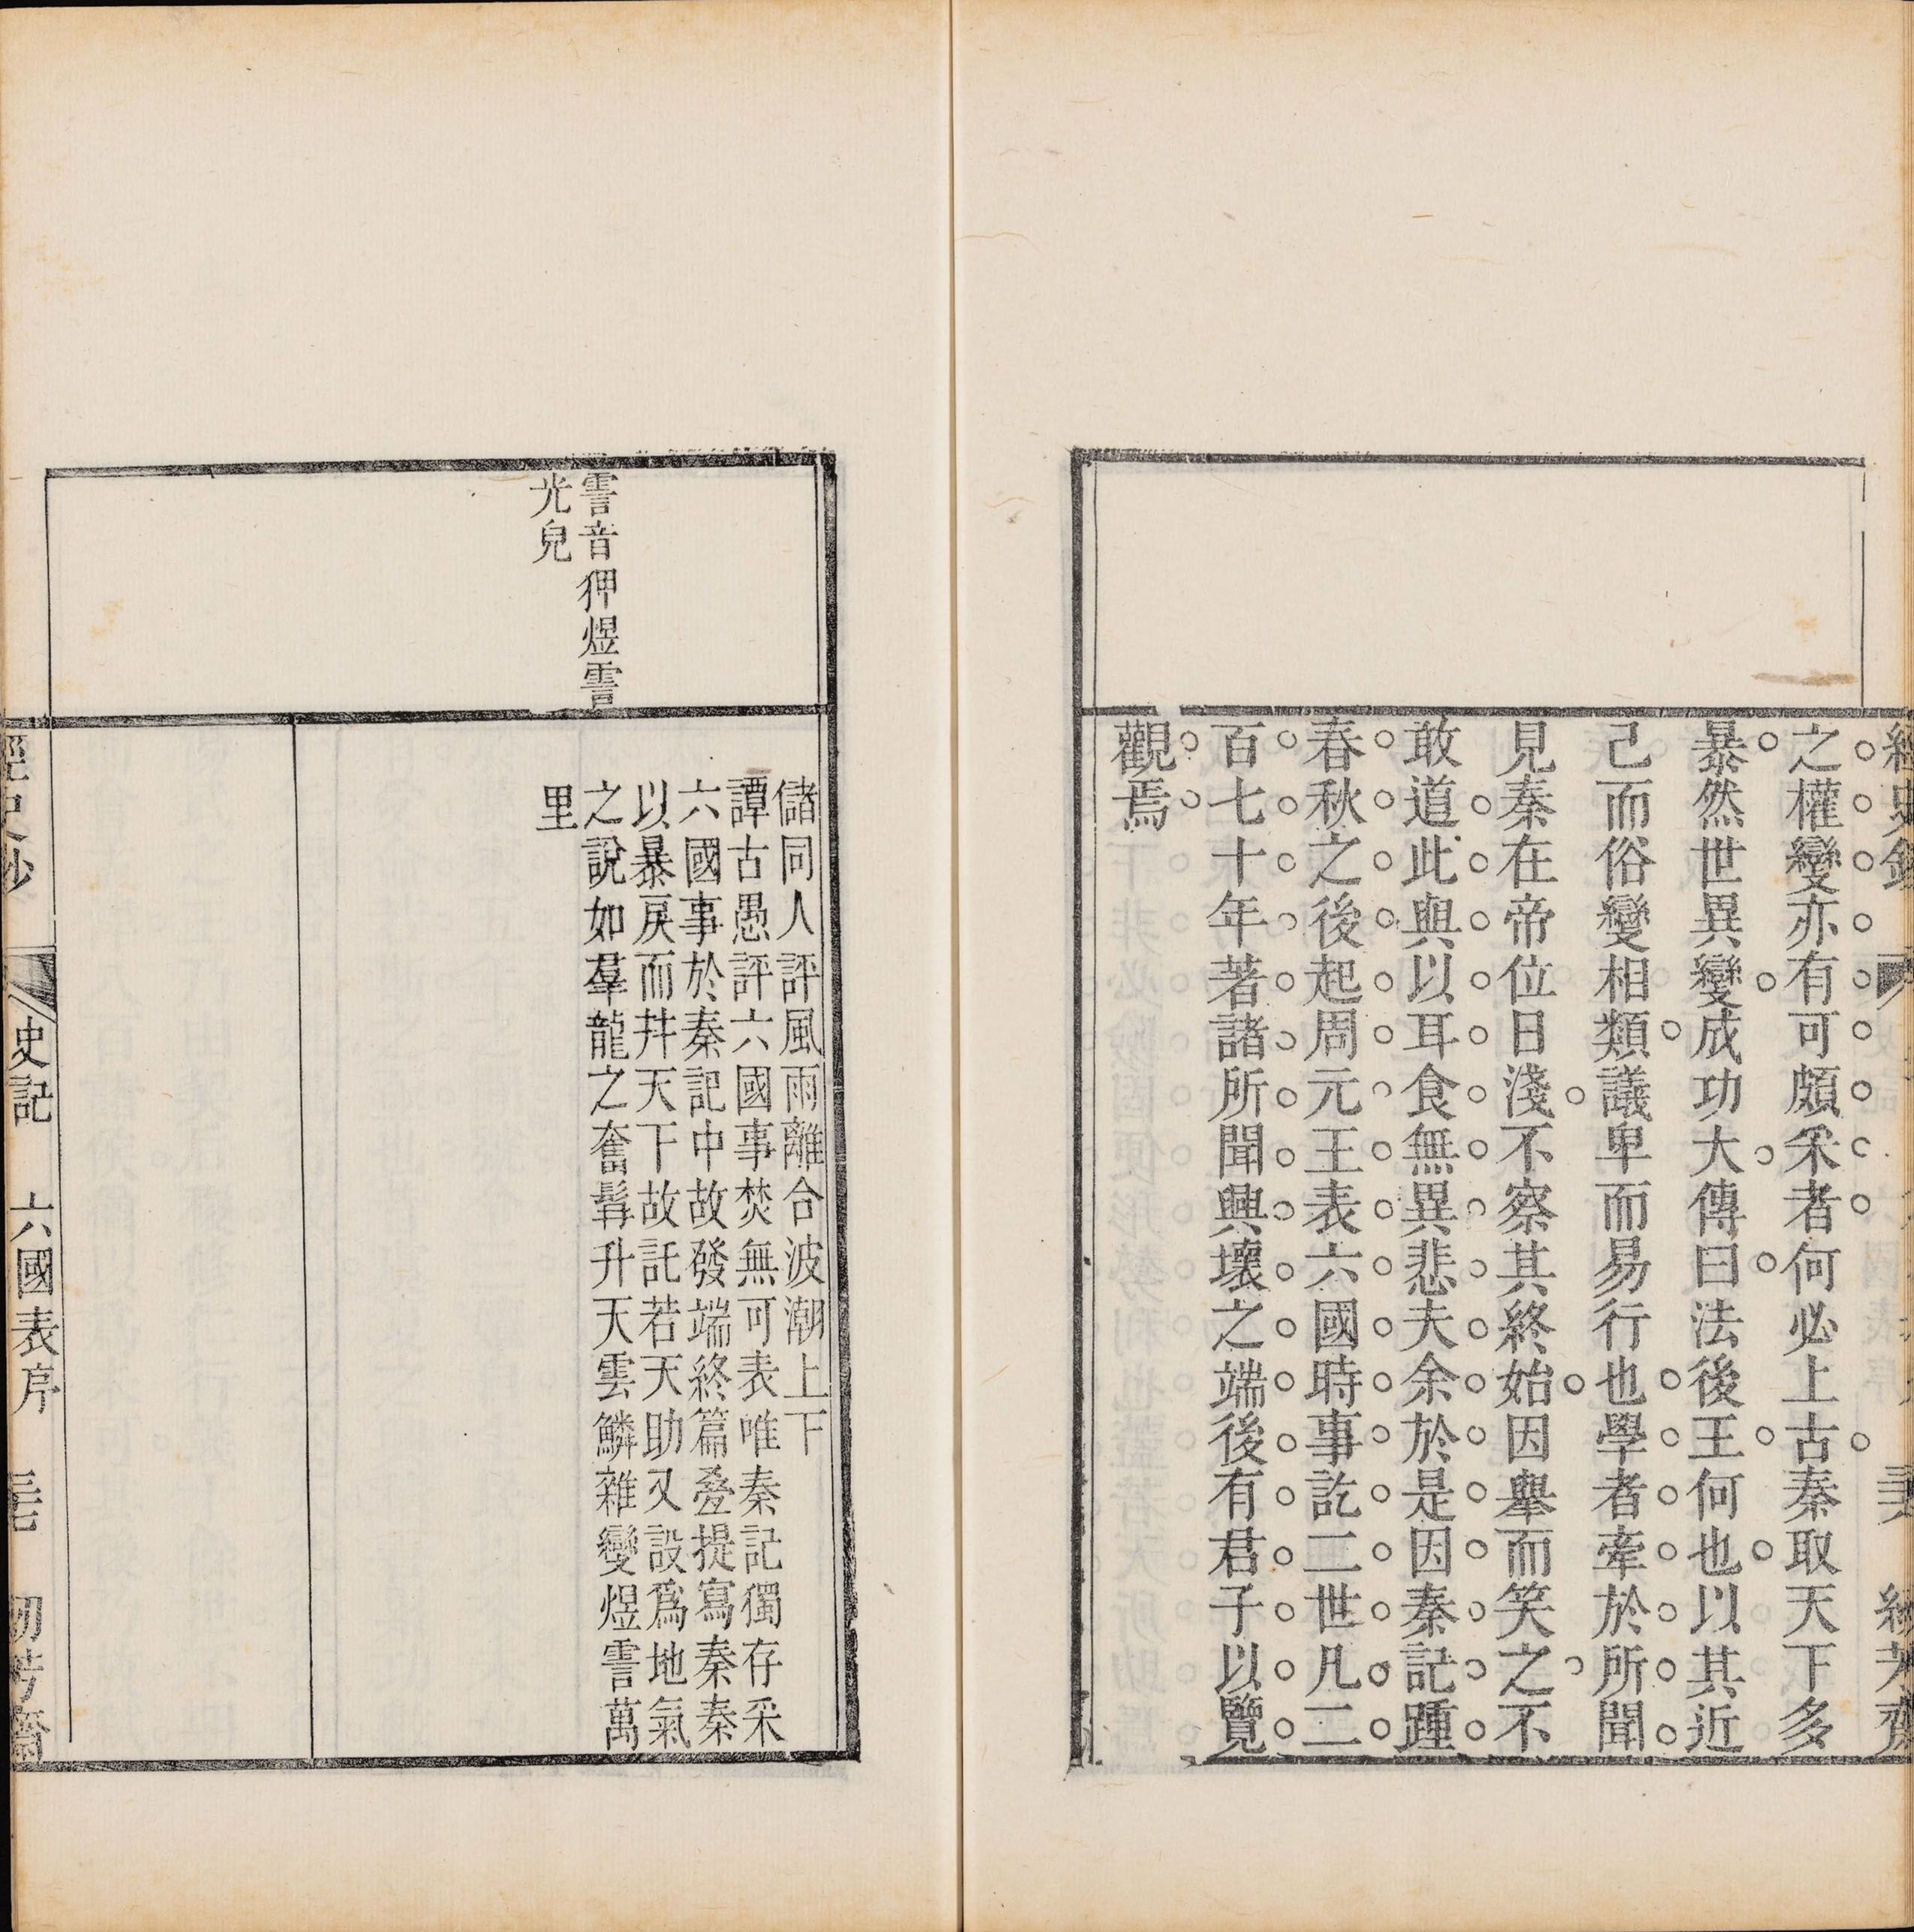 之權變亦有可頗采者何必上古秦取天下多
暴然世異變成功大傳曰法後王何也以其近
己而俗變相類議卑而易行也學者牽於所聞
見秦在帝位日淺不察其終始因舉而笑之不
敢道此與以耳食無異悲夫余於是因秦記踵
春秋之後起周元王表六國時事訖二世凡二
百七十年著諸所聞興壞之端後有君子以覽
觀焉
霅音狎煜霅
光皃
儲同人評風雨離合波潮上下
譚古愚評六國事焚無可表唯秦記獨存采
六國事於秦記中故發端終篇叠提寫秦秦
以暴戾而幷天下故託若天助又設爲地氣
之說如羣龍之奮髯升天雲鱗雜變煜霅萬
里
經史鈔
史記
六國表序